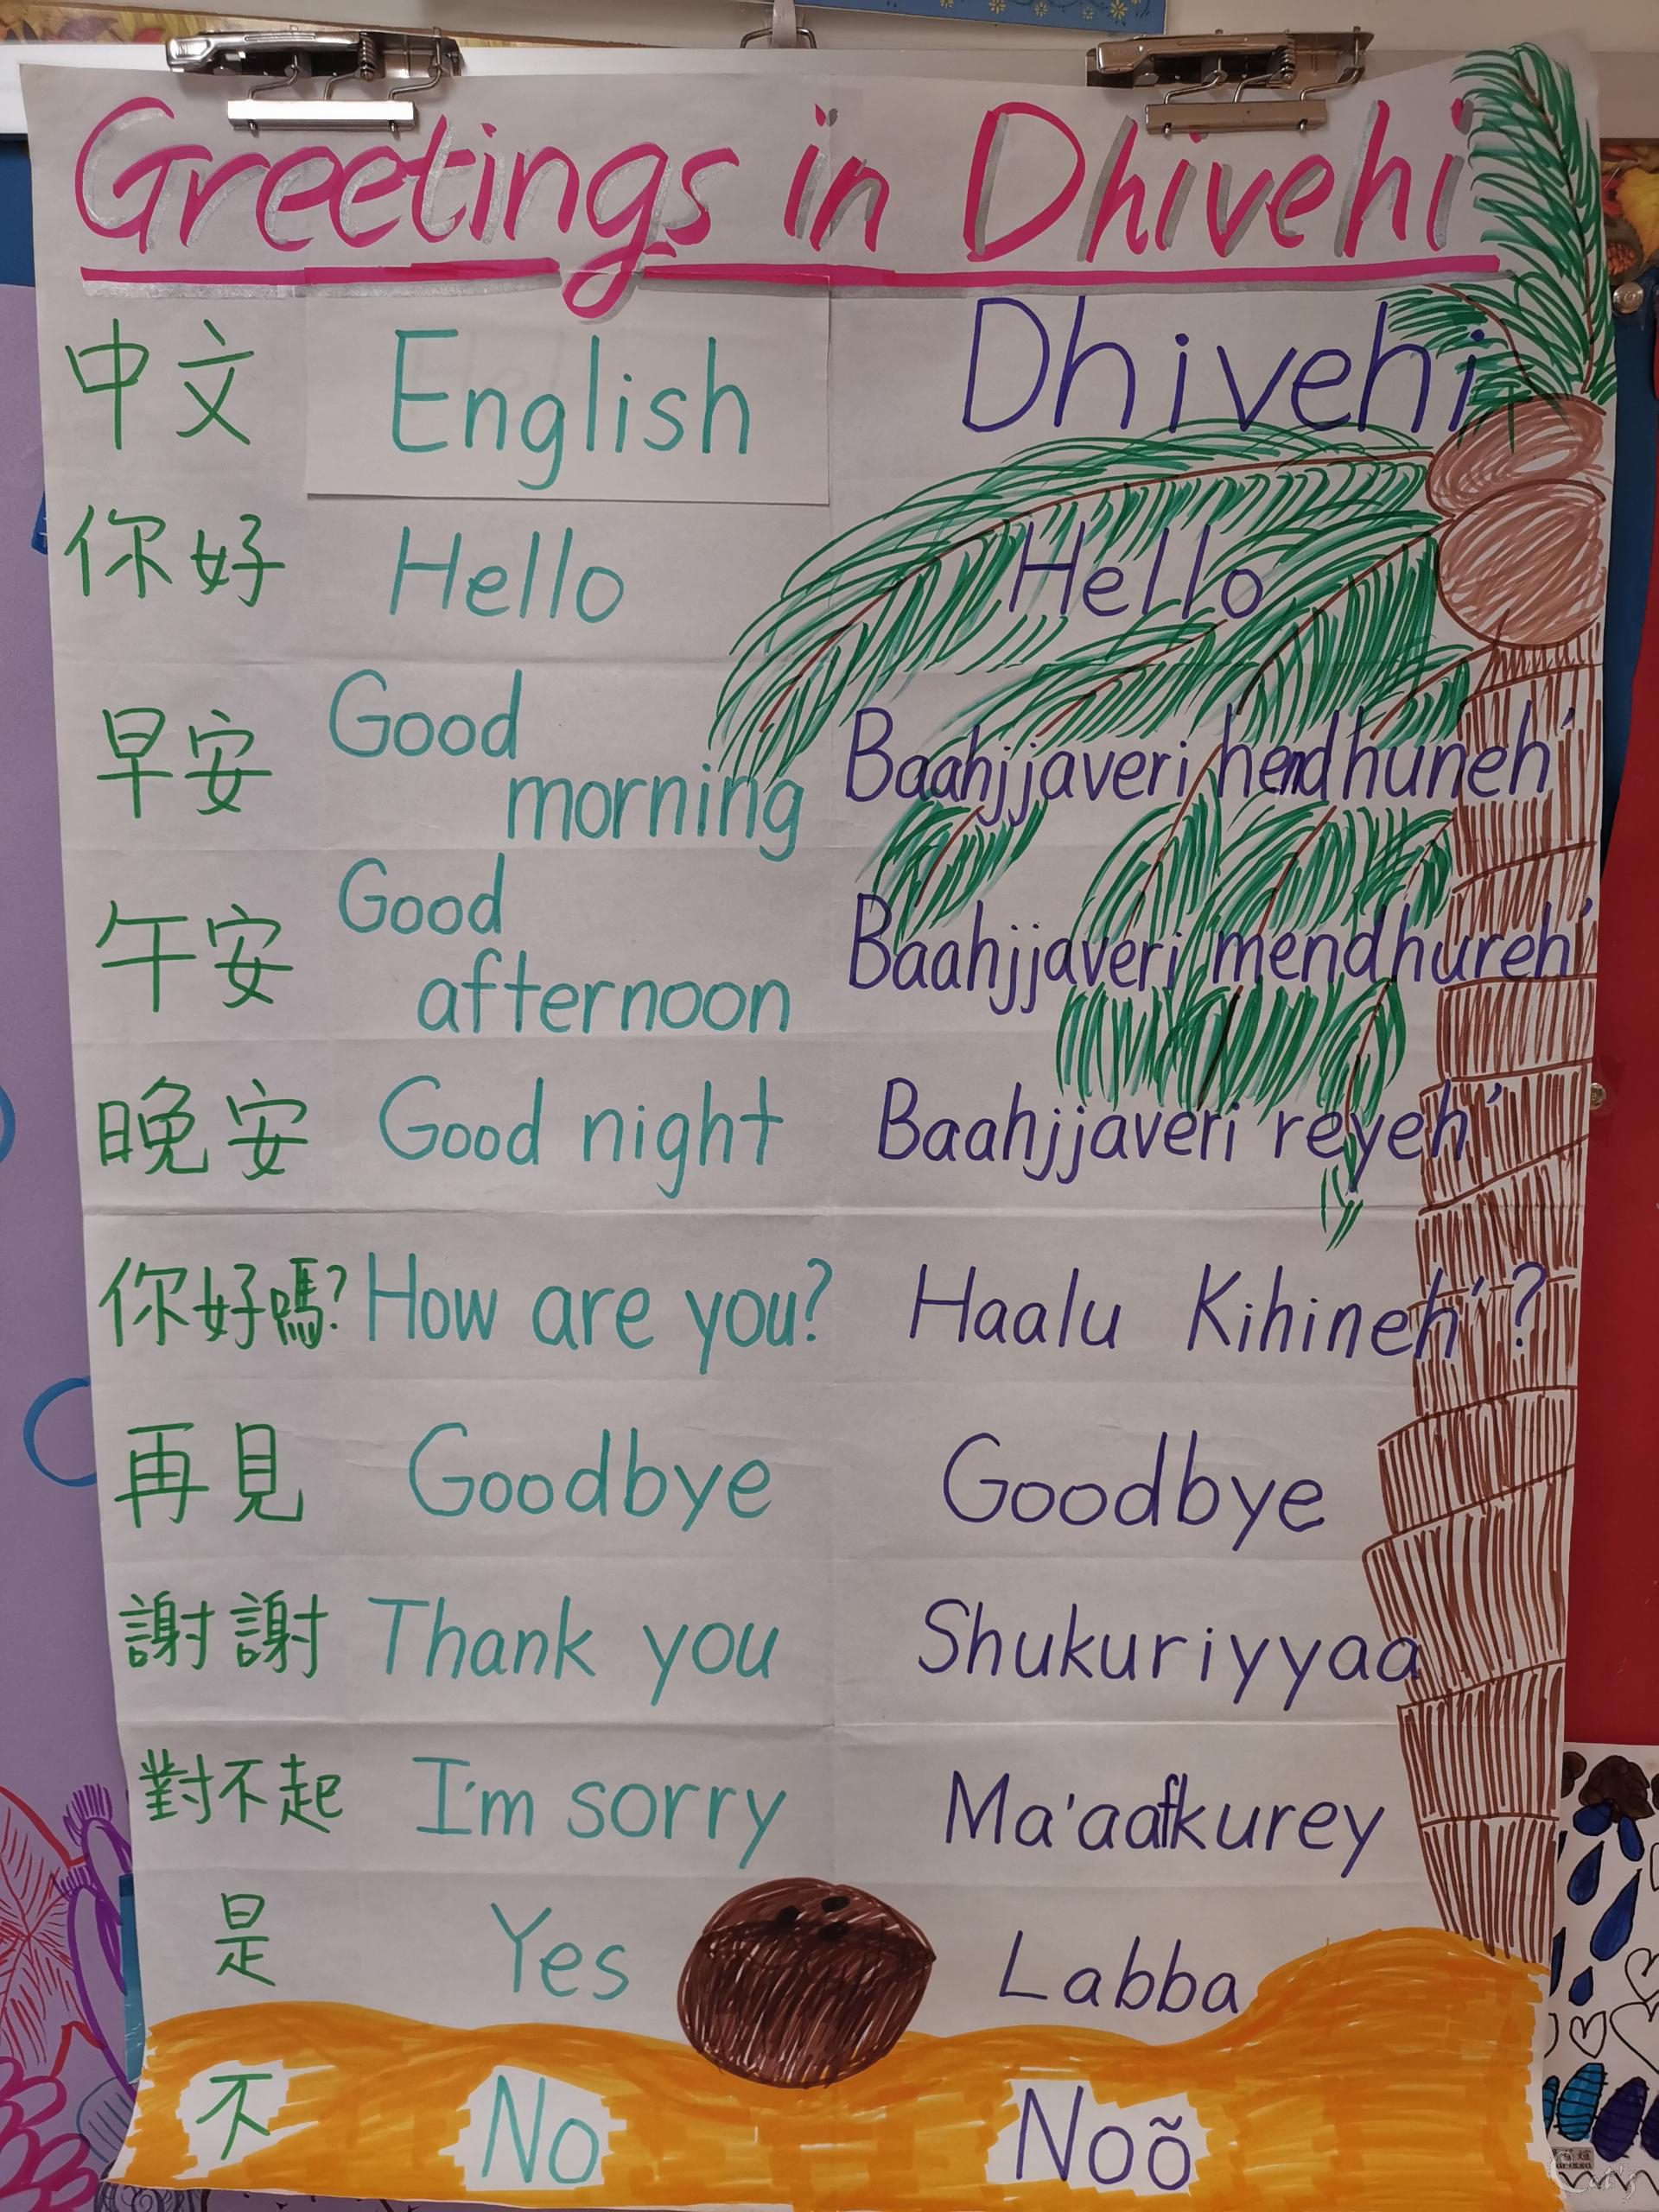 Greetings in Dhivehi
中文 English Dhivehi
你好 Hello Hello
早安 Good morning Baahjjaveri hendhuneh'
午安 Good afternoon Baahjjaveri mendhureh'
晚安 Good night Baahjjaveri reyeh'
你好嗎? How are you? Haalu Kihineh'?
再見 Goodbye Goodbye
謝謝 Thank you Shukuriyyaa
對不起 I'm sorry Ma'aafkurey
是 Yes Labba
不 No Noõ